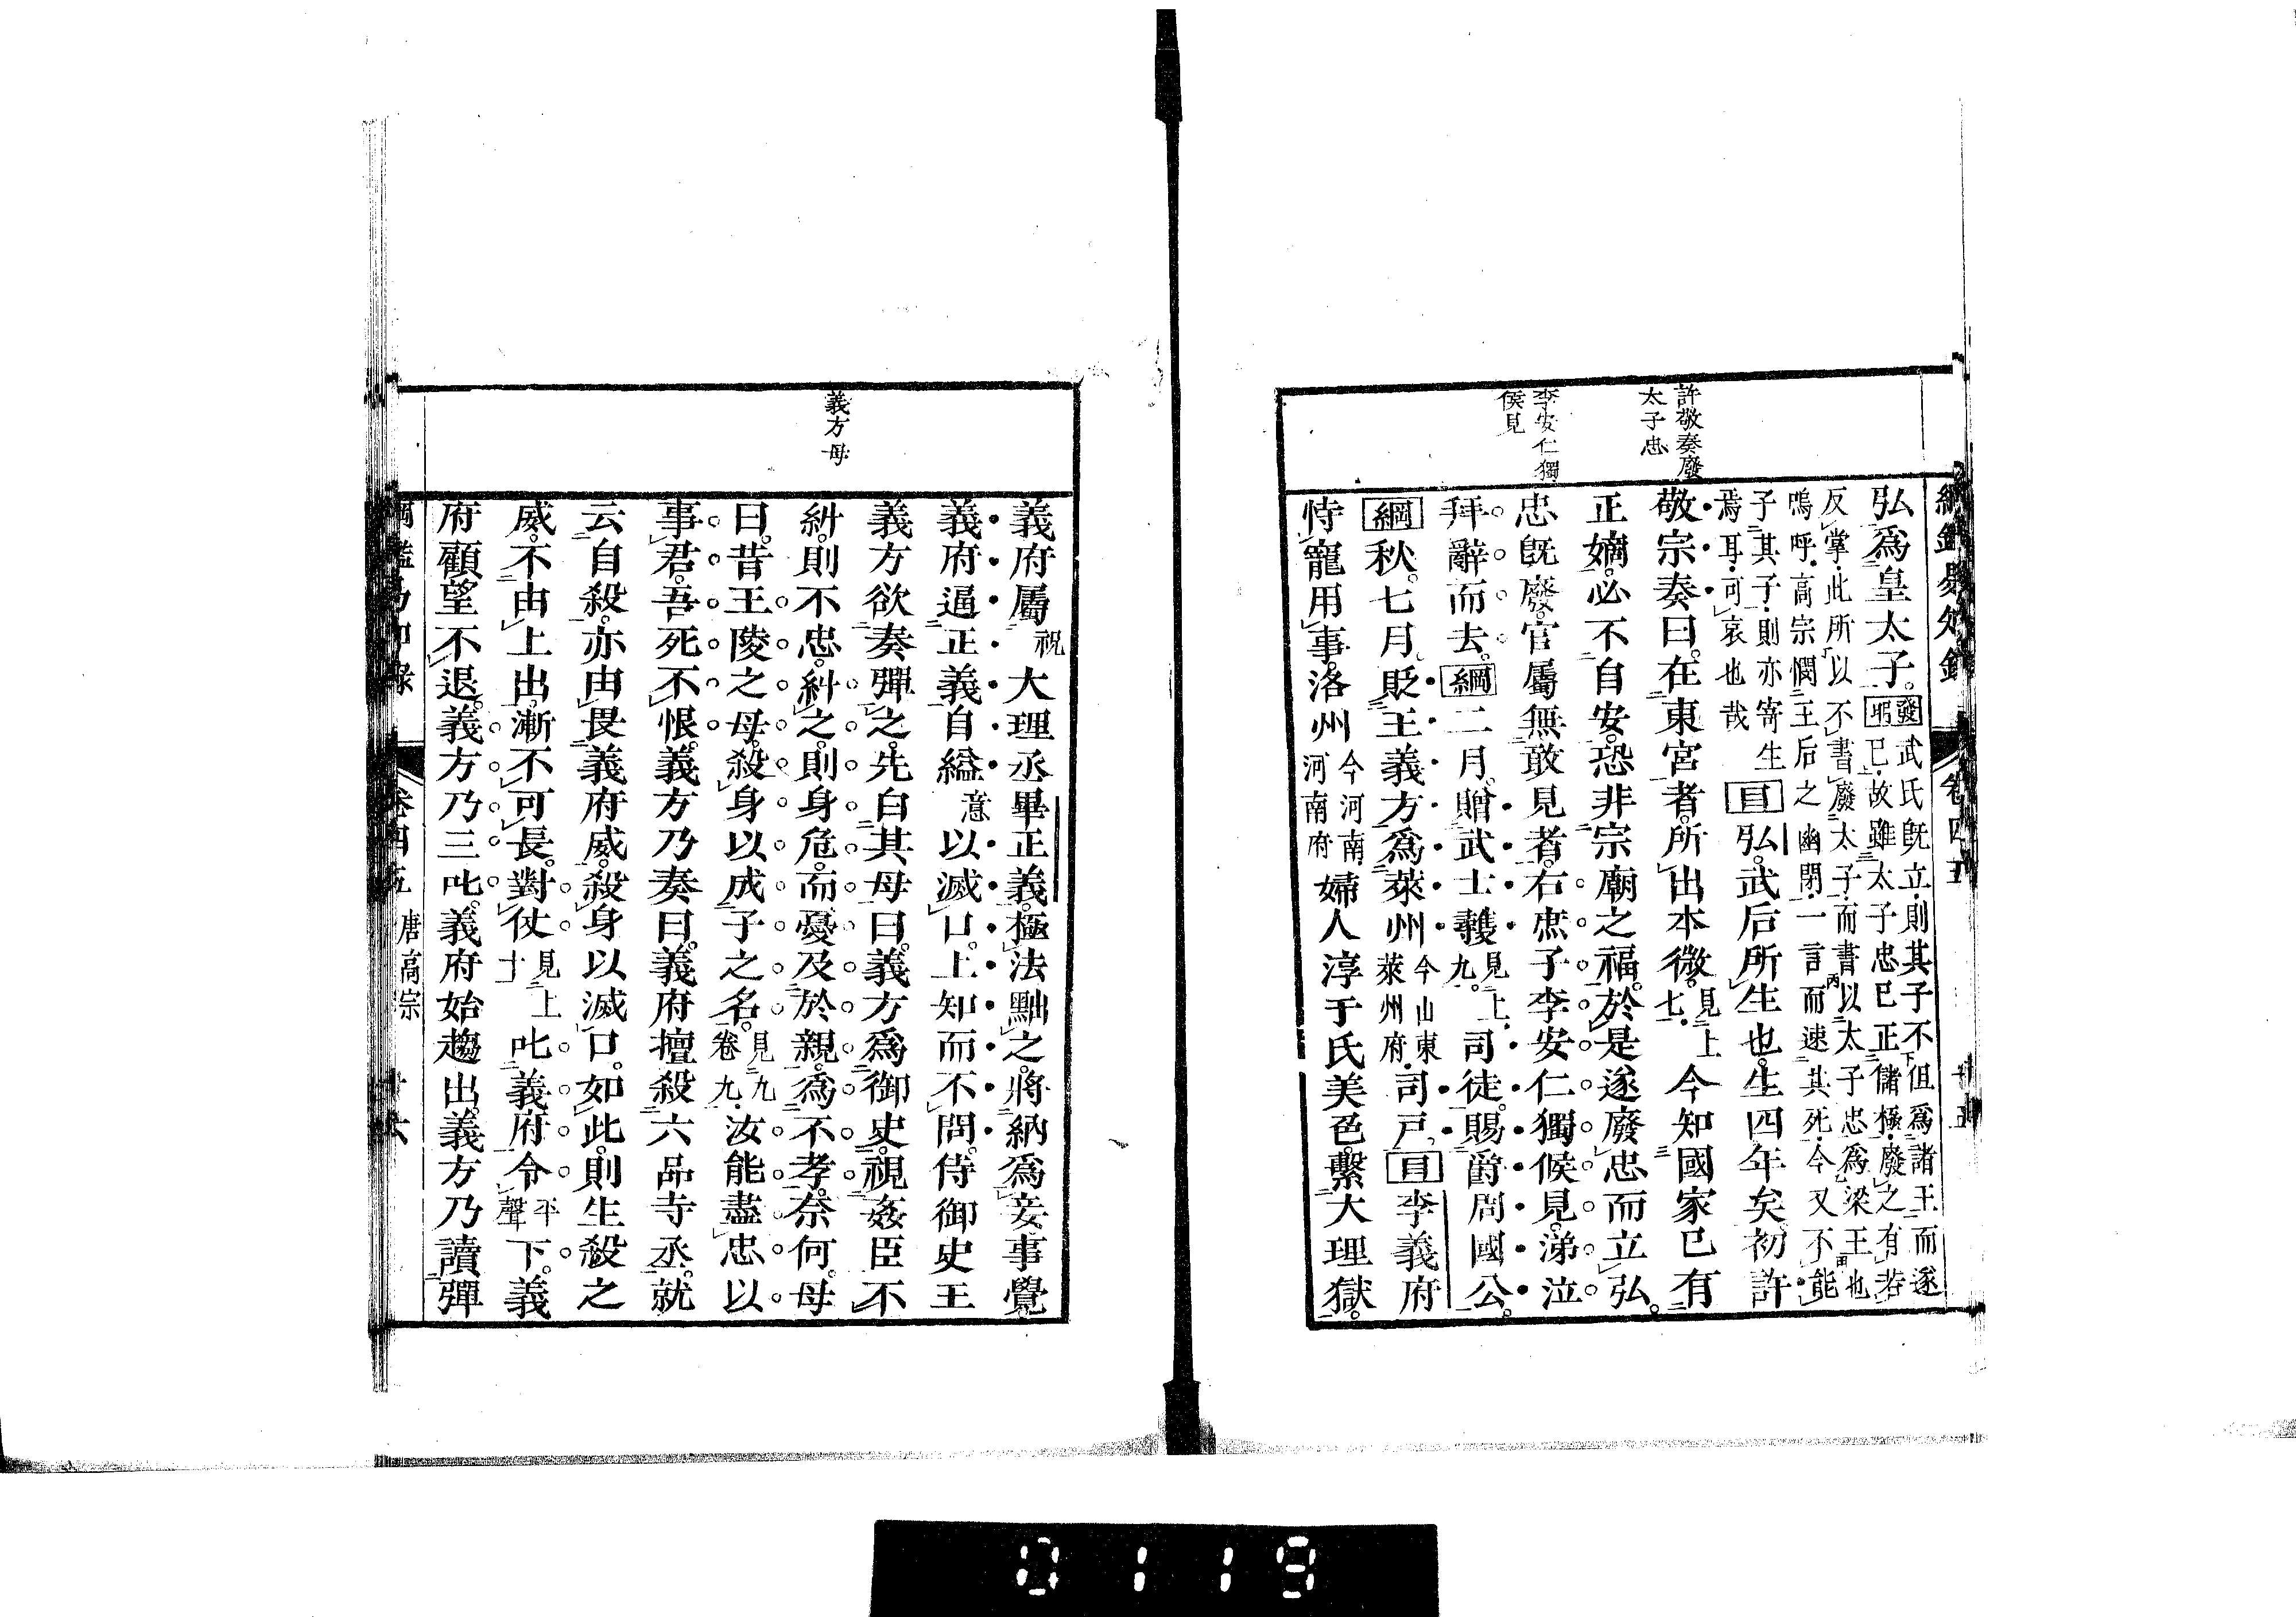 綱鑑易知錄 卷四五 廿五
許敬奏廢
太子忠
李安仁獨
侯見
弘爲皇太子。發明武氏既立則其子不但爲諸王而遂
已故雖太子忠已正儲極廢之有若
反掌此所以不書廢太子而書以太子忠爲梁王也
嗚呼高宗憫王后之幽閉一言而速其死今又不能
子其子則亦寄生
焉耳可哀也哉
目弘武后所生也。生四年矣。初許
敬宗奏曰。在東宮者。所出本微。見上七。今知國家已有
正嫡。必不自安。恐非宗廟之福。於是遂廢忠而立弘。
忠既廢。官屬無敢見者。右庶子李安仁獨候見。涕泣
拜辭而去。綱二月。贈武士彠見上九。司徒。賜爵周國公。
綱秋。七月。貶王義方爲萊州今山東萊州府司戶。目李義府
恃寵用事。洛州今河南河南府婦人淳于氏美色。繫大理獄。
義方母
義府屬祝大理丞畢正義。極法黜之。將納爲妾。事覺。
義府逼正義自縊意以滅口。上知而不問。侍御史王
義方欲奏彈之。先白其母曰。義方爲御史。視姦臣不
糾。則不忠。糾之。則身危。而憂及於親。爲不孝。奈何。母
曰。昔王陵之母。殺身以成子之名。見九卷九。汝能盡忠以
事君。吾死不恨。義方乃奏曰。義府擅殺六品寺丞。就
云自殺。亦由畏義府威。殺身以滅口。如此。則生殺之
威。不由上出。漸不可長。對仗見上十叱義府令平聲下。義
府顧望不退。義方乃三叱。義府始趨出。義方乃讀彈
綱鑑易知錄 卷四五 唐高宗 廿六
0119